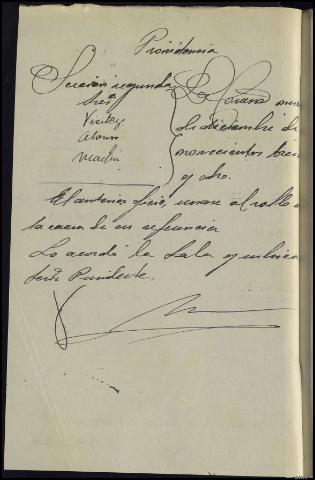 Providencia
Sección segunda
Sres
Alonso
La Coruña
de diciembre de
novecientos trein
y ocho.
El anterior oficio, unase al rollo
la causa de su referencia
Lo acordó la Sala y rubrica
Presidente.